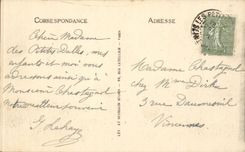 CORRESPONDANCE
ADRESSE
Chère Madame
des Petites Dalles, mes
enfants et moi vous
adressons ainsi qu'à
Monsieur Chastagnol
notre meilleur souvenir
G. Lehay
Madame Chastagnol
chez Mme Dirks
3 rue Daumesnil
Vincennes